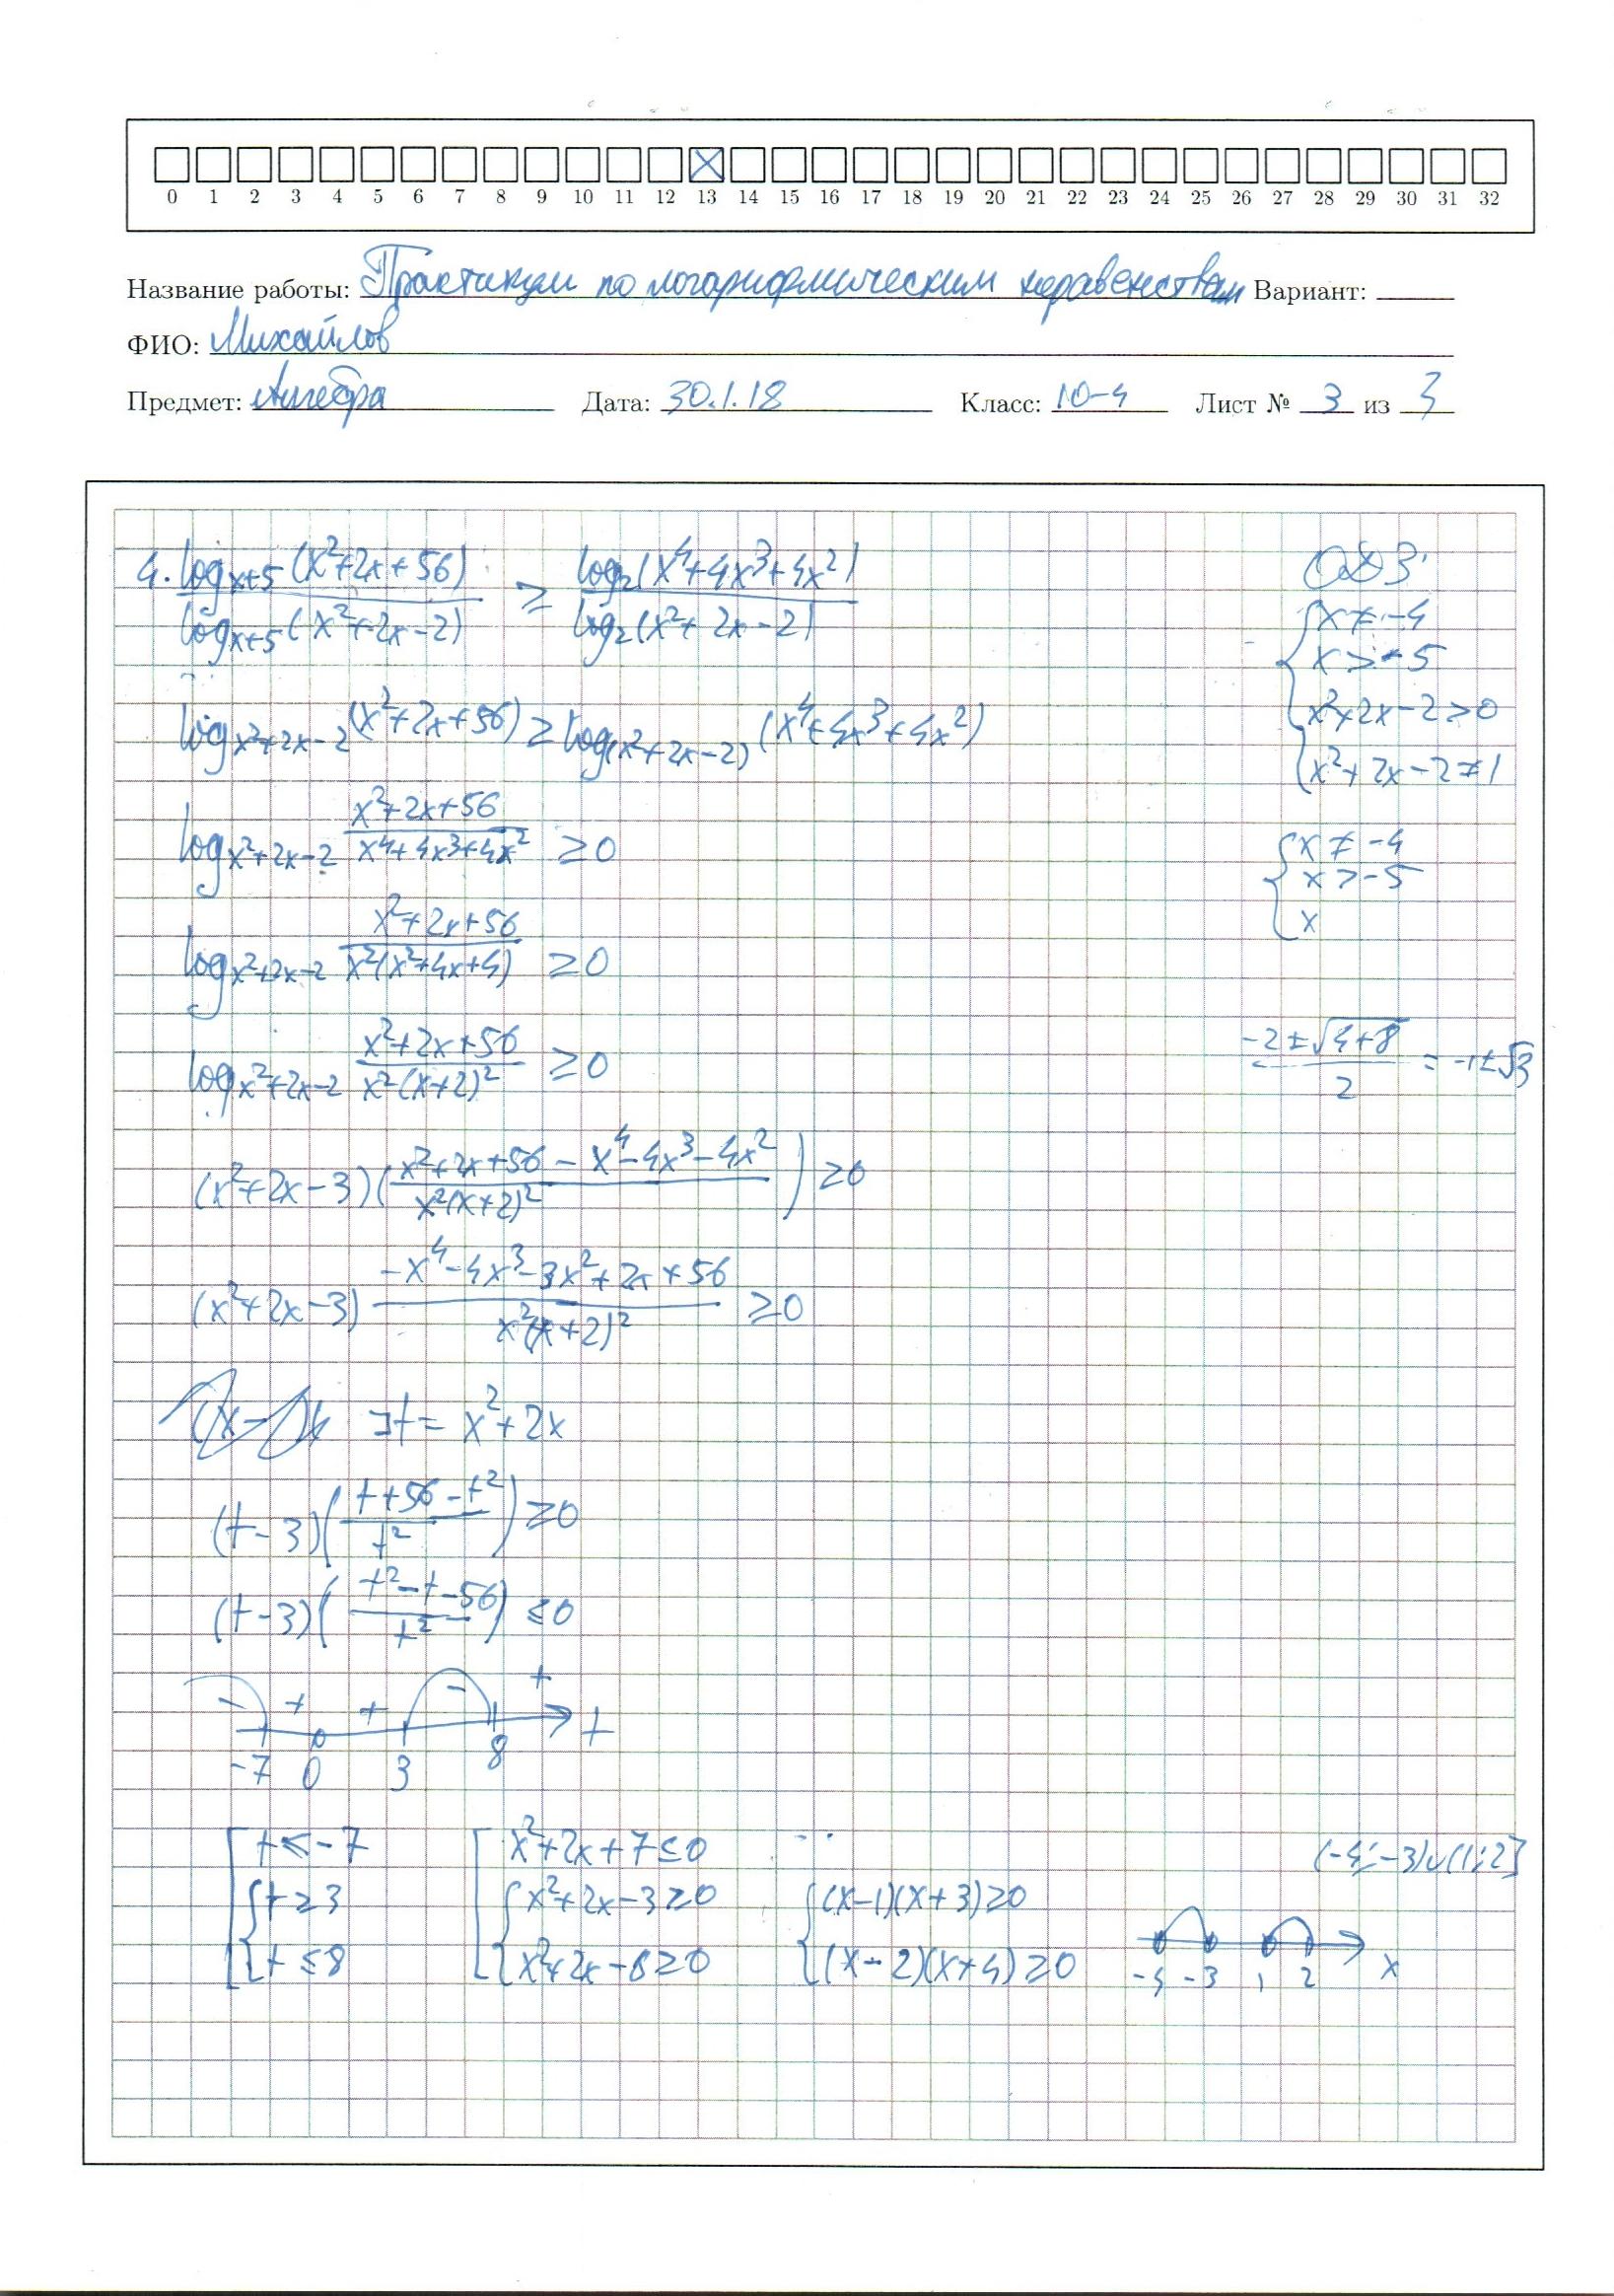 0 1 2 3 4 5 6 7 8 9 10 11 12 13 14 15 16 17 18 19 20 21 22 23 24 25 26 27 28 29 30 31 32
Название работы: Практикум по логарифмическим неравенствам Вариант:
ФИО: Михайлов
Предмет: Алгебра Дата: 30.1.18 Класс: 10-4 Лист № 3 из 3
4. log_{x+5}(x²+2x+56) / log_{x+5}(x²+2x-2) ≥ log₂(x⁴+4x³+4x²) / log₂(x²+2x-2)
ОДЗ:
{ x ≠ -4
x > -5
x²+2x-2 > 0
x²+2x-2 ≠ 1
log_{x²+2x-2}(x²+2x+56) ≥ log_{(x²+2x-2)}(x⁴+4x³+4x²)
log_{x²+2x-2} (x²+2x+56)/(x⁴+4x³+4x²) ≥ 0
{ x ≠ -4
x > -5
x
log_{x²+2x-2} (x²+2x+56)/(x²(x²+4x+4)) ≥ 0
log_{x²+2x-2} (x²+2x+56)/(x²(x+2)²) ≥ 0
(-2±√(4+8))/2 = -1±√3
(x²+2x-3)((x²+2x+56-x⁴-4x³-4x²)/(x²(x+2)²)) ≥ 0
(x²+2x-3) (-x⁴-4x³-3x²+2x+56)/(x²(x+2)²) ≥ 0
⅃t = x²+2x
(t-3)((t+56-t²)/t²) ≥ 0
(t-3)((t²-t-56)/t²) ≤ 0
- + + - + t
-7 0 3 8
[ t ≤ -7
{ t ≥ 3
t ≤ 8
[ x²+2x+7 ≤ 0
{ x²+2x-3 ≥ 0
x²+2x-8 ≥ 0
{ (x-1)(x+3) ≥ 0
(x-2)(x+4) ≥ 0
(-4;-3)∪(1;2]
-4 -3 1 2 x